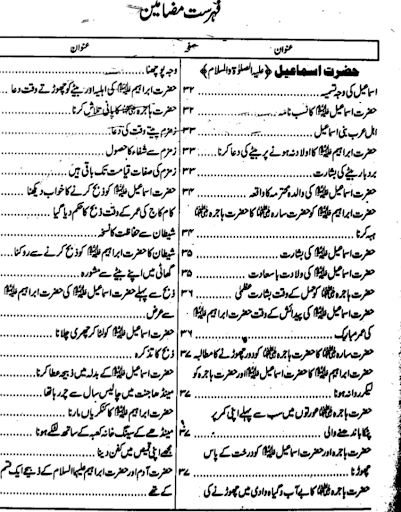 فہرست مضامین
عنوان صفحہ عنوان
حضرت اسماعیل (علیہ الصلوٰۃ والسلام)
اسماعیل کی وجہ تسمیہ ۳۲
حضرت اسماعیل علیہ السلام کا نسب نامہ ۳۲
اہل عرب بنی اسماعیل ۳۳
حضرت ابراہیم علیہ السلام کا اولاد نہ ہونے پر بیٹے کی دعا کرنا ۳۳
بردبار بیٹے کی بشارت ۳۳
حضرت اسماعیل علیہ السلام کی والدہ محترمہ کا واقعہ ۳۴
حضرت ابراہیم علیہ السلام کو حضرت سارہ کا حضرت ہاجرہ
ہبہ کرنا ۳۴
حضرت اسماعیل علیہ السلام کی بشارت ۳۵
حضرت اسماعیل علیہ السلام کی ولادت باسعادت ۳۵
حضرت ہاجرہ کو حمل کے وقت بشارت عظمیٰ ۳۶
حضرت اسماعیل علیہ السلام کی پیدائش کے وقت حضرت ابراہیم علیہ السلام
کی عمر مبارک ۳۶
حضرت سارہ کا حضرت ہاجرہ کو دور چھوڑنے کا مطالبہ ۳۷
حضرت ابراہیم علیہ السلام کا حضرت اسماعیل علیہ السلام اور حضرت ہاجرہ کو
لیکر روانہ ہونا ۳۷
حضرت ہاجرہ عورتوں میں سب سے پہلے اپنی کمر پر
پٹکا باندھنے والی ۳۷
حضرت ہاجرہ اور حضرت اسماعیل علیہ السلام کو درخت کے پاس
چھوڑنا ۳۷
حضرت ہاجرہ کا بے آب و گیاہ وادی میں چھوڑنے کی
وجہ پوچھنا
حضرت ابراہیم علیہ السلام کی اہلیہ اور بیٹے کو چھوڑتے وقت دعا
حضرت ہاجرہ کا پانی تلاش کرنا
زمزم پیتے وقت کی دعا
زمزم سے شفاء کا حصول
زمزم کی صفات قیامت تک باقی ہیں
حضرت اسماعیل علیہ السلام کو ذبح کرنے کا خواب دیکھنا
کام کاج کی عمر کے وقت ذبح کا حکم دیا گیا
شیطان سے حفاظت کا نسخہ
شیطان کا حضرت ابراہیم علیہ السلام کو ذبح کرنے سے روکنا
گھاٹی میں اپنے بیٹے سے مشورہ
ذبح سے پہلے حضرت اسماعیل علیہ السلام کی حضرت ابراہیم علیہ السلام
سے عرض
حضرت اسماعیل علیہ السلام کو لٹا کر چھری چلانا
ذبح کا تذکرہ
حضرت اسماعیل علیہ السلام کے بدلہ میں ذبیحہ عطا کرنا
مینڈھا جنت میں چالیس سال سے چر رہا تھا
حضرت ابراہیم علیہ السلام کا کنکریاں مارنا
مینڈھے کے سینگ خانہ کعبہ کے ساتھ لٹکے ہونا
مجھے اپنی قمیص میں کفن دینا
حضرت آدم اور حضرت ابراہیم علیہما السلام کے ذبیحے ایک قسم
کے تھے